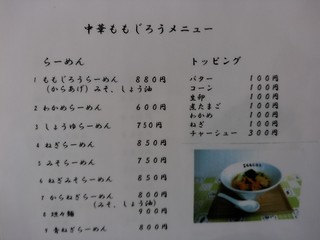 中華ももじろうメニュー
らーめん
1 ももじろうらーめん 880円
(からあげ)みそ、しょうゆ
2 わかめらーめん 600円
3 しょうゆらーめん 750円
4 ねぎらーめん 850円
5 みそらーめん 750円
6 ねぎみそらーめん 850円
7 からねぎらーめん 800円
(みそ、しょうゆ)
8 担々麺 900円
9 青ねぎらーめん 800円
トッピング
バター 100円
コーン 100円
生卵 100円
煮たまご 100円
わかめ 100円
ねぎ 100円
チャーシュー 300円